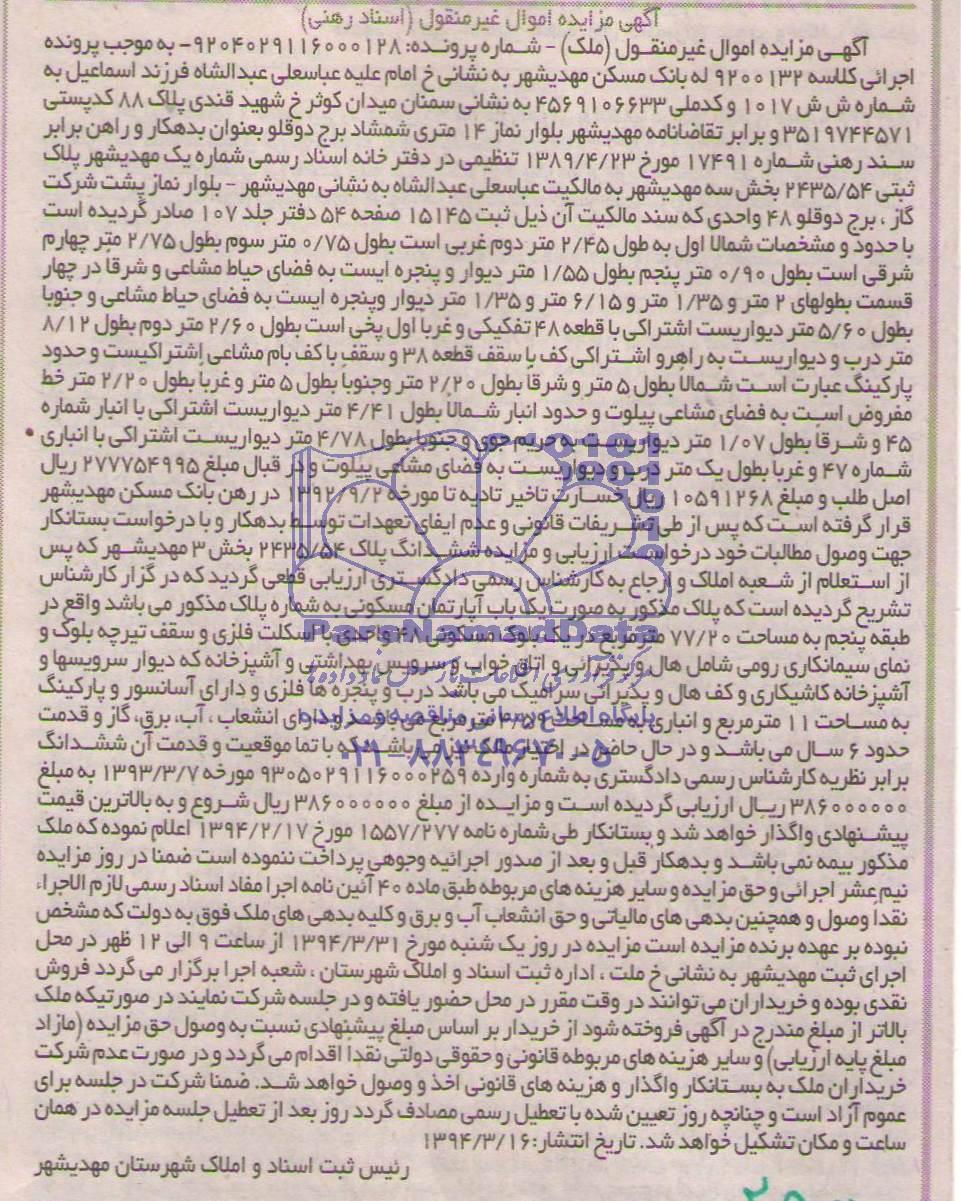 آگهی مزایده اموال غیرمنقول (اسناد رهنی)
آگهـی مزایده اموال غیرمنقول (ملک) - شماره پرونده: ۹۲۰۴۰۲۹۱۱۶۰۰۰۱۲۸- به موجب پرونده
اجرائی کلاسه ۹۲۰۰۱۳۲ له بانک مسکن مهدیشهر به نشانی خ امام علیه عباسعلی عبدالشاه فرزند اسماعیل به
شماره ش ش ۱۰۱۷ و کدملی ۴۵۶۹۱۰۶۶۳۳ به نشانی سمنان میدان کوثر خ شهید قندی پلاک ۸۸ کدپستی
۳۵۱۹۷۴۴۵۷۱ و برابر تقاضانامه مهدیشهر بلوار نماز ۱۴ متری شمشاد برج دوقلو بعنوان بدهکار و راهن برابر
سند رهنی شماره ۱۷۴۹۱ مورخ ۱۳۸۹/۴/۲۳ تنظیمی در دفتر خانه اسناد رسمی شماره یک مهدیشهر پلاک
ثبتی ۲۴۳۵/۵۴ بخش سه مهدیشهر به مالکیت عباسعلی عبدالشاه به نشانی مهدیشهر - بلوار نماز پشت شرکت
گاز ، برج دوقلو ۴۸ واحدی که سند مالکیت آن ذیل ثبت ۱۵۱۴۵ صفحه ۵۴ دفتر جلد ۱۰۷ صادر گردیده است
با حدود و مشخصات شمالا اول به طول ۲/۴۵ متر دوم غربی است بطول ۰/۷۵ متر سوم بطول ۲/۷۵ متر چهارم
شرقی است بطول ۰/۹۰ متر پنجم بطول ۱/۵۵ متر دیوار و پنجره ایست به فضای حیاط مشاعی و شرقا در چهار
قسمت بطولهای ۲ متر و ۱/۳۵ متر و ۶/۱۵ متر و ۱/۳۵ متر دیوار وپنجره ایست به فضای حیاط مشاعی و جنوبا
بطول ۵/۶۰ متر دیواریست اشتراکی با قطعه ۴۸ تفکیکی و غربا اول پخی است بطول ۲/۶۰ متر دوم بطول ۸/۱۲
متر درب و دیواریست به راهرو اشتراکی کف با سقف قطعه ۳۸ و سقف با کف بام مشاعی اشتراکیست و حدود
پارکینگ عبارت است شمالا بطول ۵ متر و شرقا بطول ۲/۲۰ متر وجنوبا بطول ۵ متر و غربا بطول ۲/۲۰ متر خط
مفروض است به فضای مشاعی پیلوت و حدود انبار شمالا بطول ۴/۴۱ متر دیواریست اشتراکی با انبار شماره
۴۵ و شرقا بطول ۱/۰۷ متر دیواریست به حریم جوی و جنوبا بطول ۴/۷۸ متر دیواریست اشتراکی با انباری
شماره ۴۷ و غربا بطول یک متر درب و دیواریست به فضای مشاعی پیلوت و در قبال مبلغ ۲۷۷۷۵۴۹۹۵ ریال
اصل طلب و مبلغ ۱۰۵۹۱۲۶۸ ریال خسارت تاخیر تادیه تا مورخه ۱۳۹۲/۹/۲ در رهن بانک مسکن مهدیشهر
قرار گرفته است که پس از طی تشریفات قانونی و عدم ایفای تعهدات توسط بدهکار و با درخواست بستانکار
جهت وصول مطالبات خود درخواست ارزیابی و مزایده ششدانگ پلاک ۲۴۳۵/۵۴ بخش ۳ مهدیشهر که پس
از استعلام از شعبه املاک و ارجاع به کارشناس رسمی دادگستری ارزیابی قطعی گردید که در گزار کارشناس
تشریح گردیده است که پلاک مذکور به صورت یک باب آپارتمان مسکونی به شماره پلاک مذکور می باشد واقع در
طبقه پنجم به مساحت ۷۷/۲۰ مترمربع در یک بلوک مسکونی ۴۸ واحدی با اسکلت فلزی و سقف تیرچه بلوک و
نمای سیمانکاری رومی شامل هال و پذیرائی و اتاق خواب و سرویس بهداشتی و آشپزخانه که دیوار سرویسها و
آشپزخانه کاشیکاری و کف هال و پذیرائی سرامیک می باشد درب و پنجره ها فلزی و دارای آسانسور و پارکینگ
به مساحت ۱۱ مترمربع و انباری به مساحت مترمربع می باشد و دارای انشعاب ، آب، برق، گاز و قدمت
حدود ۶ سال می باشد و در حال حاضر در اختیار مالک می باشد که با تما موقعیت و قدمت آن ششدانگ
برابر نظریه کارشناس رسمی دادگستری به شماره وارده ۹۳۰۵۰۲۹۱۱۶۰۰۰۲۵۹ مورخه ۱۳۹۳/۳/۷ به مبلغ
۳۸۶۰۰۰۰۰۰ ریـال ارزیابی گردیده است و مزایـده از مبلغ ۳۸۶۰۰۰۰۰۰ ریال شـروع و به بالاترین قیمت
پیشـنهادی واگذار خواهد شد و بستانکار طی شماره نامه ۱۵۵۷/۲۷۷ مورخ ۱۳۹۴/۲/۱۷ اعلام نموده که ملک
مذکور بیمه نمی باشد و بدهکار قبل و بعد از صدور اجرائیه وجوهی پرداخت ننموده است ضمنا در روز مزایده
نیم عشر اجرائی و حق مزایده و سایر هزینه های مربوطه طبق ماده ۴۰ آئین نامه اجرا مفاد اسناد رسمی لازم الاجراء
نقدا وصول و همچنین بدهی های مالیاتی و حق انشعاب آب و برق و کلیه بدهی های ملک فوق به دولت که مشخص
نبوده بر عهده برنده مزایده است مزایده در روز یک شنبه مورخ ۱۳۹۴/۳/۳۱ از ساعت ۹ الی ۱۲ ظهر در محل
اجرای ثبت مهدیشهر به نشانی خ ملت ، اداره ثبت اسناد و املاک شهرستان ، شعبه اجرا برگزار می گردد فروش
نقدی بوده و خریداران می توانند در وقت مقرر در محل حضور یافته و در جلسه شرکت نمایند در صورتیکه ملک
بالاتر از مبلغ مندرج در آگهی فروخته شود از خریدار بر اساس مبلغ پیشنهادی نسبت به وصول حق مزایده (مازاد
مبلغ پایه ارزیابی) و سایر هزینه های مربوطه قانونی و حقوقی دولتی نقدا اقدام می گردد و در صورت عدم شرکت
خریداران ملک به بستانکار واگذار و هزینه های قانونی اخذ و وصول خواهد شـد. ضمنا شرکت در جلسه برای
عموم آزاد است و چنانچه روز تعیین شده با تعطیل رسمی مصادف گردد روز بعد از تعطیل جلسه مزایده در همان
ساعت و مکان تشکیل خواهد شد. تاریخ انتشار: ۱۳۹۴/۳/۱۶
رئیس ثبت اسناد و املاک شهرستان مهدیشهر
ParsNamadData
پایگاه اطلاع رسانی مناقصه و مزایده
۰۲۱-۸۸۳۴۹۶۷۰-۵